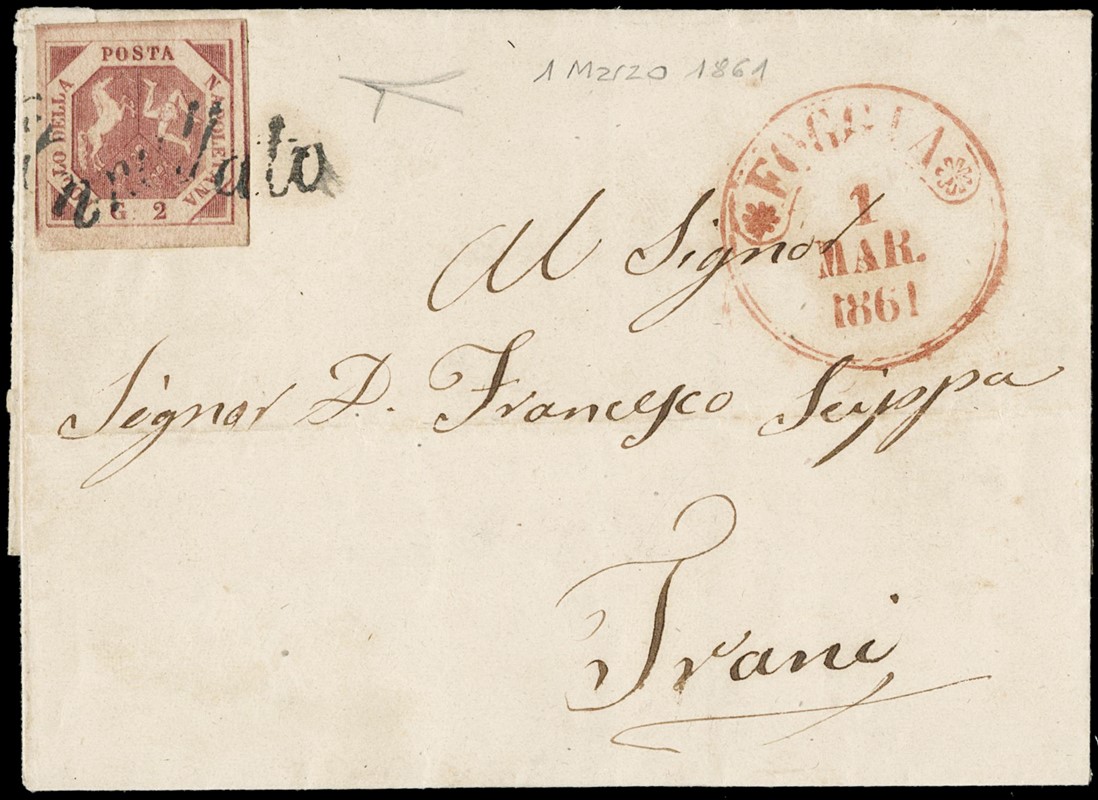 POSTA
NAPOLETANA
LO DELLA
G. 2
Annullato
1 Marzo 1861
FOGGIA
1
MAR.
1861
Al Signor
Signor D. Francesco Scippa
Trani